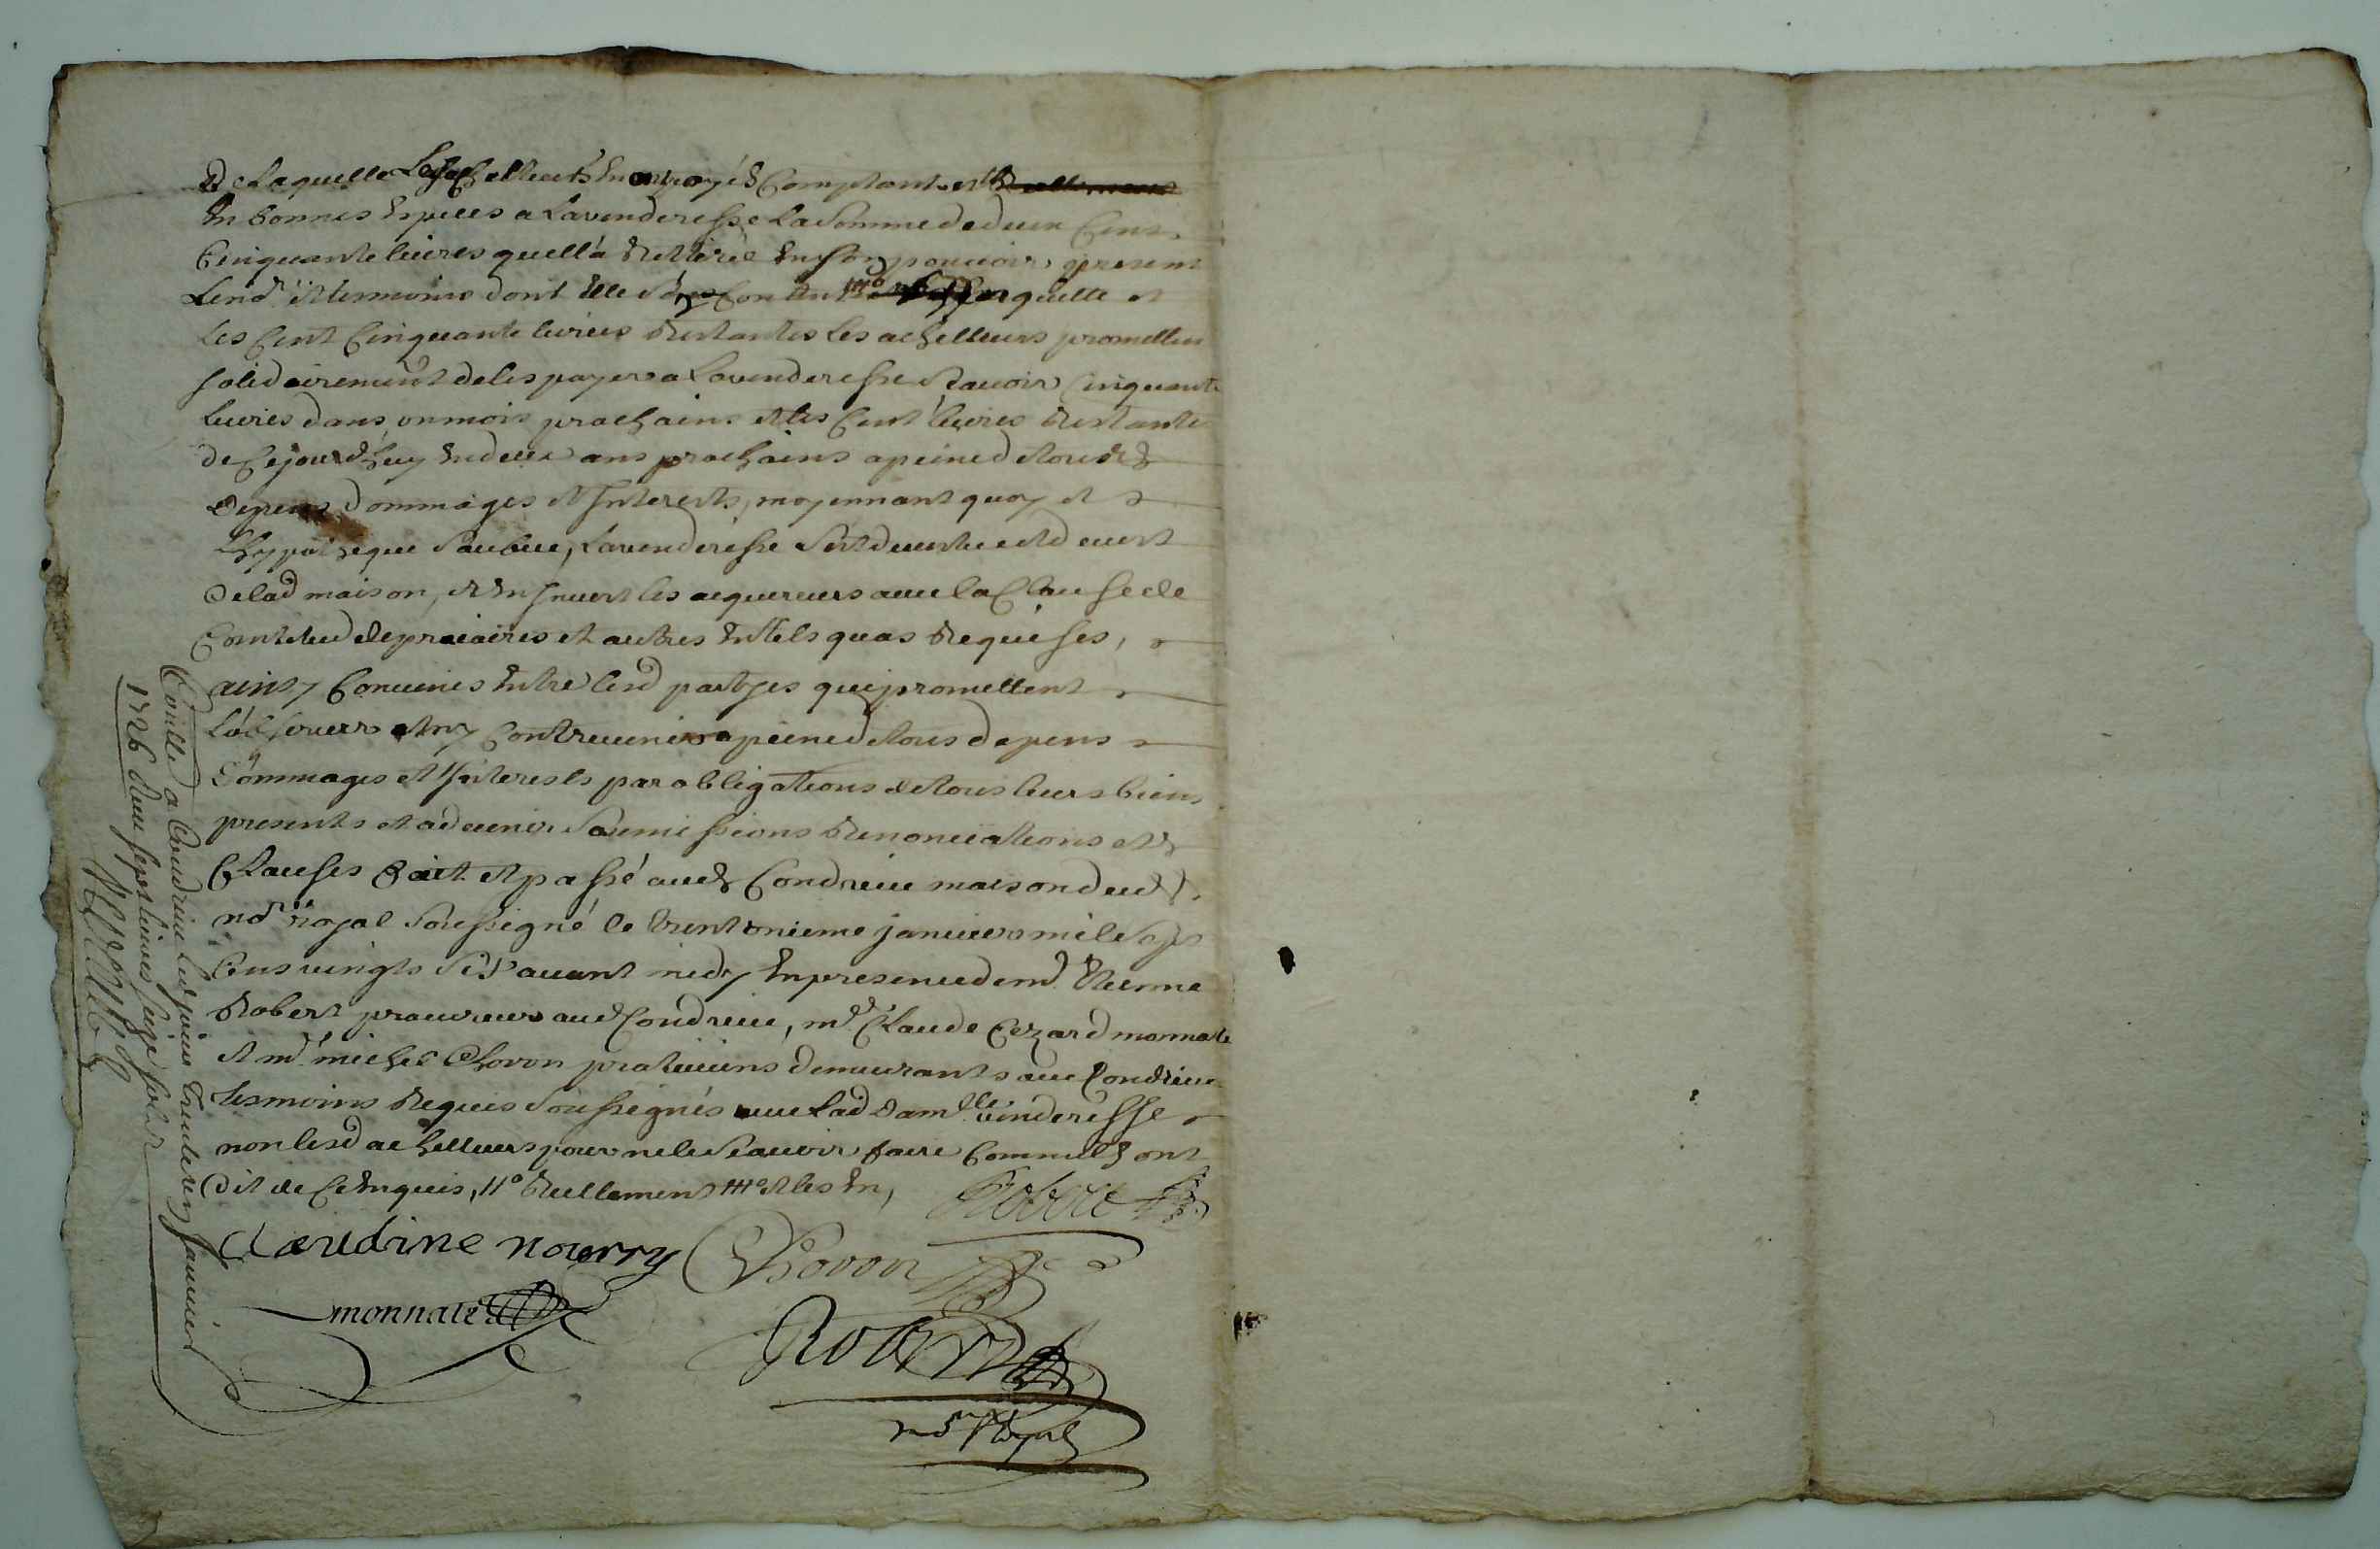 de Laquelle Les achetteurs en ont payés Comptant et II° reellement
En bonnes Especes a Lavenderesse La Somme de deux Cent
Cinquante livres quella Rettirée En son pouuoir, present
Led nre et tesmoins dont Elle s'est Contentée III° quitte et
Les Cent Cinquante livres Restantes Les achetteurs promettent
solidairement de les payer a Lavenderesse Scauoir Cinquante
livres dans un mois prochain et les Cent livres Restante
de Cejourdhuy En deux ans prochains a peine de tous
depens dommages et Interests, moyennant quoy et
Lhypotheque Sauluee, Lavenderesse s'est deuestue et deuest
de lad maison, et En Inuest les acquereurs auec la Clause de
Constitut de precaires et autres En tels quas Requises,
ainsy Conuenus Entre lesd partyes qui promettent
Lobseruer et ny Contreuenir a peine de tous depens
Dommages et Interests par obligations de tous leurs biens
presents et aduenir Soumissions Renonciations et
Clauses fait et passé aud Condrieu maison dud
nore royal Soussigné le trentunieme januier mile sept
Cens vingts Six auant midy En presence de md Etienne
Robert procureur aud Condrieu, md Claude Cezard monnate
et md michel Chovon praticiens demeurants aud Condrieu
tesmoins Requis Soussignés auec lad damlle venderesse
non lesd achetteurs pour ne le Scauoir faire Comme ils ont
Dit de Ce Enquis, II° Reellement III° et les En,
Robert
claudine nourry
Chovon
monnate
Robert
nore Royal
Conttlé a Condrieu Led jour trente un januier
1726 Receu sept liures seize sols